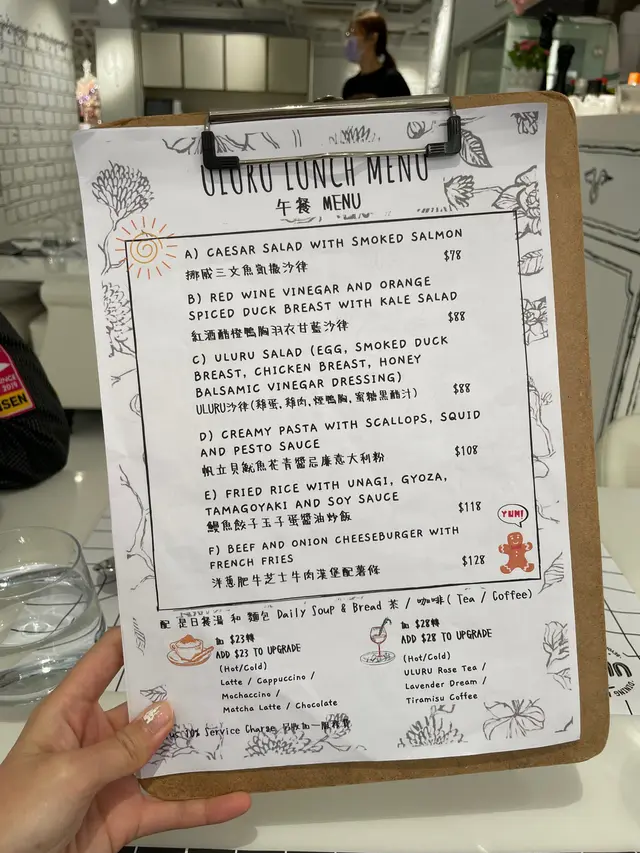 ULURU LUNCH MENU
午餐 MENU
A) CAESAR SALAD WITH SMOKED SALMON
$78
挪威三文魚凱撒沙律
B) RED WINE VINEGAR AND ORANGE
SPICED DUCK BREAST WITH KALE SALAD
$88
紅酒醋橙鴨胸羽衣甘藍沙律
C) ULURU SALAD (EGG, SMOKED DUCK
BREAST, CHICKEN BREAST, HONEY
BALSAMIC VINEGAR DRESSING)
$88
ULURU沙律(雞蛋,雞肉,煙鴨胸,蜜糖黑醋汁)
D) CREAMY PASTA WITH SCALLOPS, SQUID
AND PESTO SAUCE
$108
帆立貝魷魚花青醬忌廉意大利粉
E) FRIED RICE WITH UNAGI, GYOZA,
TAMAGOYAKI AND SOY SAUCE
$118
鰻魚餃子玉子蛋醬油炒飯
YUM!
F) BEEF AND ONION CHEESEBURGER WITH
FRENCH FRIES
$128
洋蔥肥牛芝士牛肉漢堡配薯條
配 是日餐湯 和 麵包 Daily Soup & Bread 茶 / 咖啡( Tea / Coffee)
加 $23轉
ADD $23 TO UPGRADE
(Hot/Cold)
Latte / Cappuccino /
Mochaccino /
Matcha Latte / Chocolate
加 $28轉
ADD $28 TO UPGRADE
(Hot/Cold)
ULURU Rose Tea /
Lavender Dream /
Tiramisu Coffee
10% Service Charge 另收加一服務費
SINCE
2019